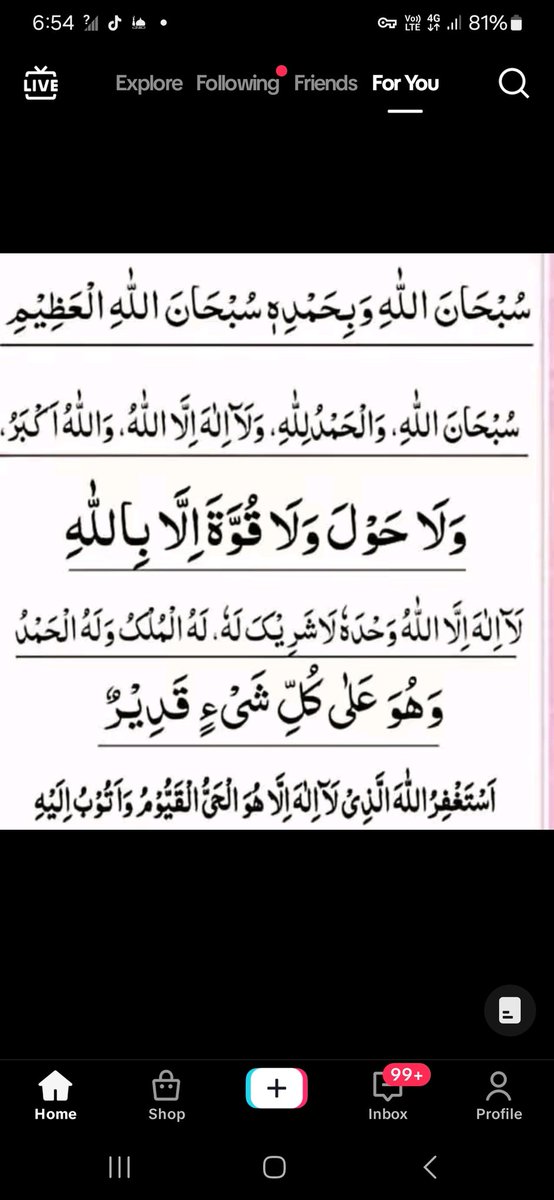 6:54 81%
LIVE Explore Following Friends For You
سُبْحَانَ اللّٰهِ وَبِحَمْدِهٖ سُبْحَانَ اللّٰهِ الْعَظِيْمِ
سُبْحَانَ اللّٰهِ، وَالْحَمْدُ لِلّٰهِ، وَلَآ اِلٰهَ اِلَّا اللّٰهُ، وَاللّٰهُ اَكْبَرُ،
وَلَا حَوْلَ وَلَا قُوَّةَ اِلَّا بِاللّٰهِ
لَآ اِلٰهَ اِلَّا اللّٰهُ وَحْدَهٗ لَا شَرِيْكَ لَهٗ، لَهُ الْمُلْكُ وَلَهُ الْحَمْدُ
وَهُوَ عَلٰى كُلِّ شَىْءٍ قَدِيْرٌ
اَسْتَغْفِرُ اللّٰهَ الَّذِىْ لَآ اِلٰهَ اِلَّا هُوَ الْحَىُّ الْقَيُّوْمُ وَاَتُوْبُ اِلَيْهِ
99+
Home Shop Inbox Profile